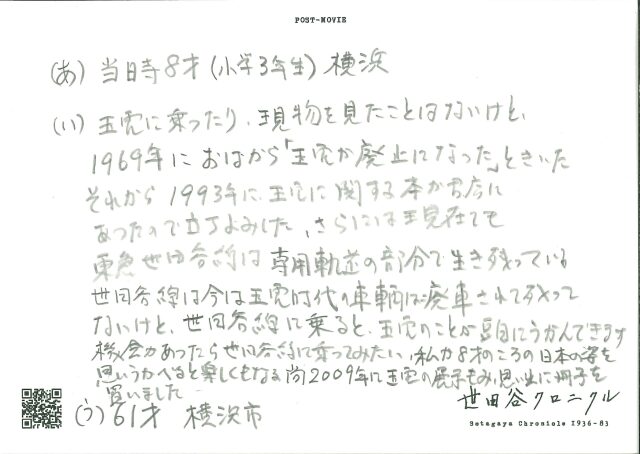 POST-MOVIE
(あ) 当日寺8才(小学3年生) 横浜
(い) 玉電に乗ったり、現物を見たことはないけど、
1969年におばから「玉電が廃止になった」ときいた
それから1993年に玉電に関する本が書店に
あったので立よみした、さらには現在でも
東急世田谷線は専用軌道の部分で生き残っている
世田谷線は今は玉電時代の車輌は廃車されて残って
ないけど、世田谷線に乗ると、玉電のことが頭にうかんできます
機会があったら世田谷線に乗ってみたい、私が8才のころの日本の姿を
思いうかべると楽しくもなる 尚2009年に玉電の展示もみ、思い出に冊子を
買いました
(う) 61才 横浜市
世田谷クロニクル
Setagaya Chronicle 1936-83